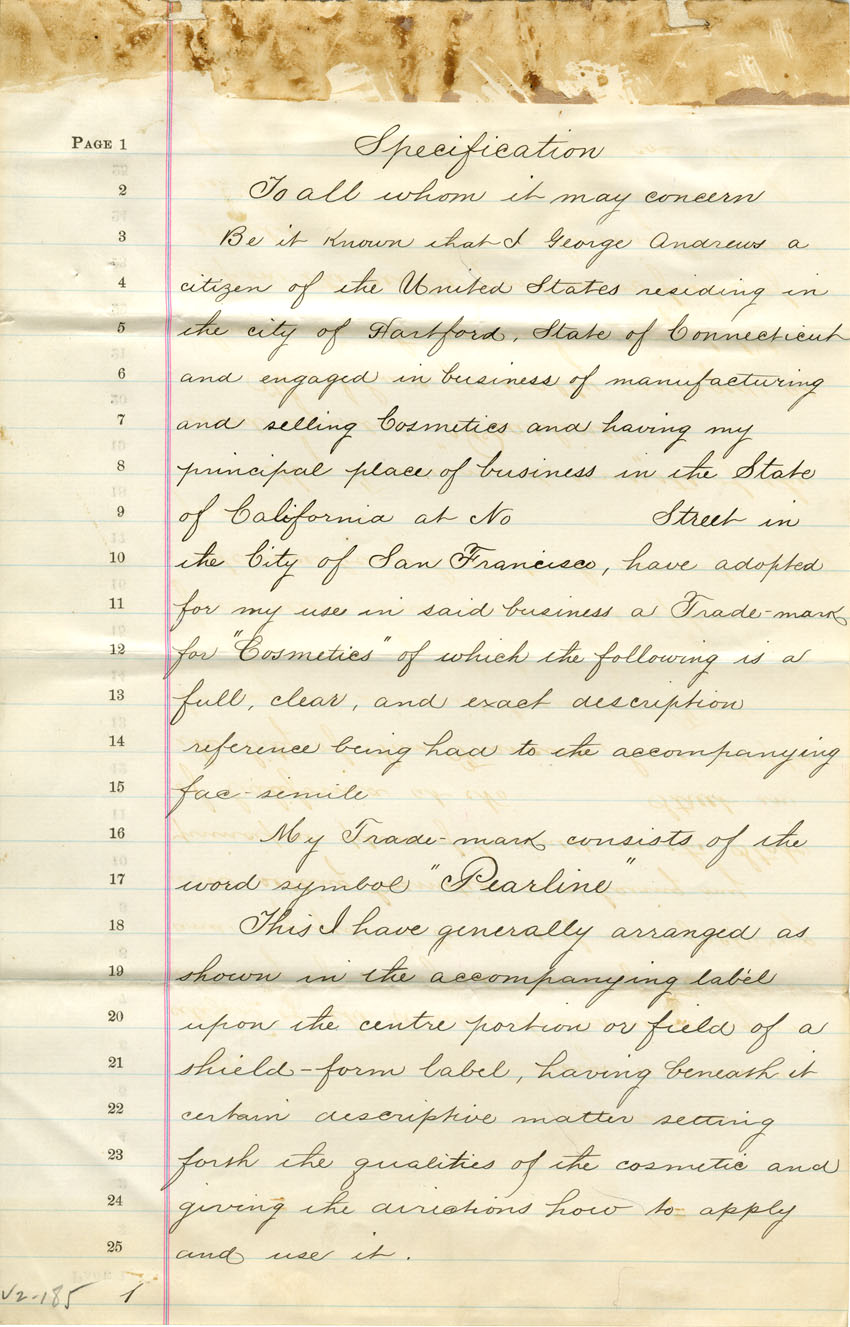 PAGE 1 Specification
2 To all whom it may concern
3 Be it Known that I George Andrews a
4 citizen of the United States residing in
5 the city of Hartford, State of Connecticut
6 and engaged in business of manufacturing
7 and selling Cosmetics and having my
8 principal place of business in the State
9 of California at No Street in
10 the City of San Francisco, have adopted
11 for my use in said business a Trade-mark
12 for "Cosmetics" of which the following is a
13 full, clear, and exact description
14 reference being had to the accompanying
15 fac-simile
16 My Trade-mark consists of the
17 word symbol "Pearline"
18 This I have generally arranged as
19 shown in the accompanying label
20 upon the centre portion or field of a
21 shield-form label, having beneath it
22 certain descriptive matter setting
23 forth the qualities of the cosmetic and
24 giving the directions how to apply
25 and use it.
V2-185 1